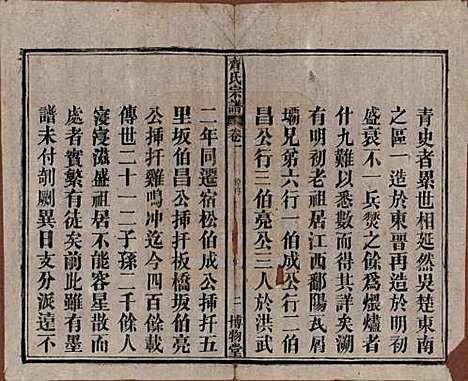 青史者累世相延然吳楚東南
之區一造於東晋再造於明初
盛衰不一兵焚之餘爲煨燼者
什九難以悉數而得其詳矣溯
前有明初老祖居江西鄱陽瓦屑
壩兄第六行一伯成公行二伯
昌公行三伯亮公三人於洪武
齊氏宗譜
卷一
二
博物堂
二年同遷宿松伯成公揷扦五
里坂伯昌公揷扦板橋坂伯亮
公揷扦雞鳴冲迄今四百餘載
傳世二十一二子孫二千餘人
寖寖滋盛祖居不能容星散而
處者實繁有徒矣前此雖有墨
譜未付剞劂異日支分派遠不